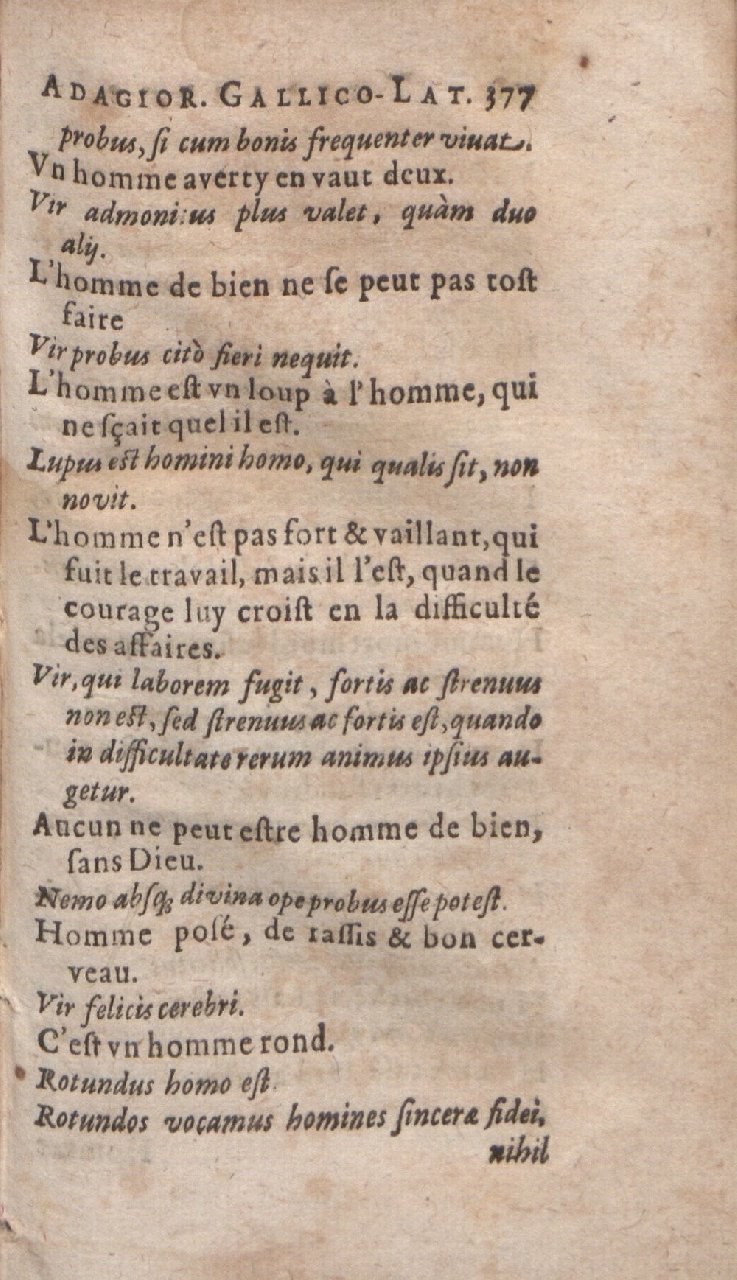 ADAGIOR. GALLICO-LAT. 377
probus, ſi cum bonis frequenter vivat.
Vn homme averty en vaut deux.
Vir admonitus plus valet, quàm duo
alij.
L'homme de bien ne ſe peut pas toſt
faire
Vir probus citò fieri nequit.
L'homme eſt vn loup à l'homme, qui
ne ſçait quel il eſt.
Lupus eſt homini homo, qui qualis ſit, non
novit.
L'homme n'eſt pas fort & vaillant, qui
fuit le travail, mais il l'eſt, quand le
courage luy croiſt en la difficulté
des affaires.
Vir, qui laborem fugit, fortis ac ſtrenuus
non eſt, ſed ſtrenuus ac fortis eſt, quando
in difficultate rerum animus ipſius au-
getur.
Aucun ne peut eſtre homme de bien,
ſans Dieu.
Nemo abſq; divina ope probus eſſe poteſt.
Homme poſé, de raſſis & bon cer-
veau.
Vir felicis cerebri.
C'eſt vn homme rond.
Rotundus homo eſt.
Rotundos vocamus homines ſinceræ fidei,
nihil